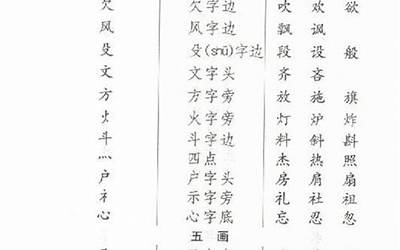 欠 欠字边 吹 欢 欲
风 风字边 飘 讽
殳 殳(shū)字边 段 设 般
文 文字头 齐 吝
方 方字旁 放 施 旗
火 火字旁 灯 炉 炸
斗 斗字边 料 斜 斟
灬 四点 杰 热 照
户 户字头 房 扇
礻 示字旁 礼 社 祖
心 心字底 忘 忍 忽
五画